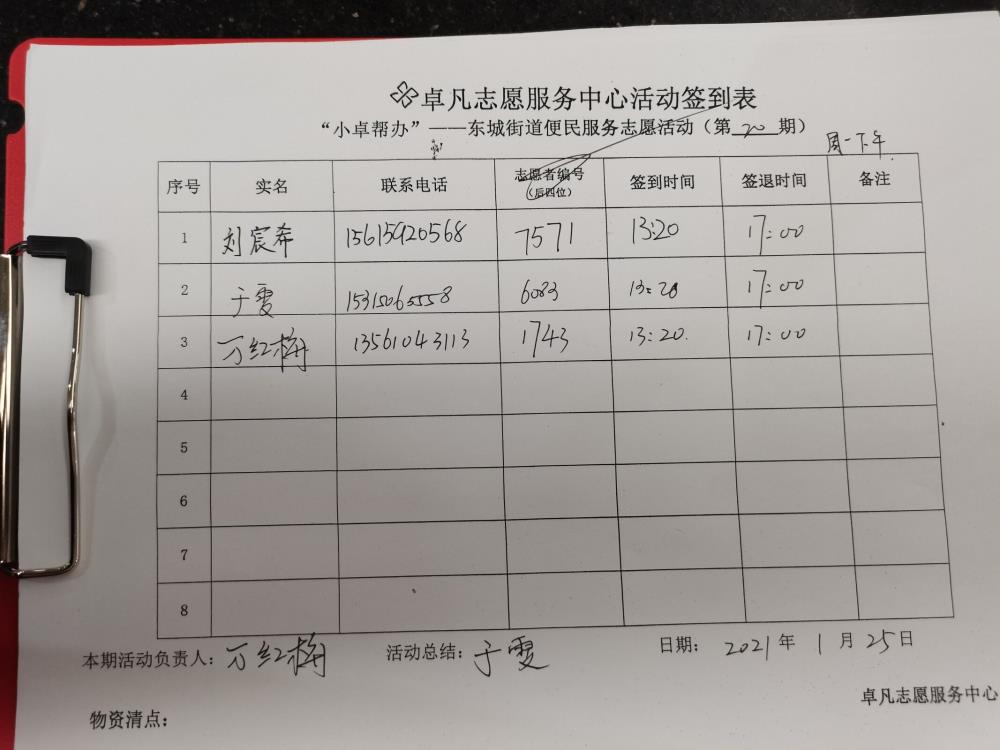 卓凡志愿服务中心活动签到表
“小卓帮办”——东城街道便民服务志愿活动（第 20 期）
周一下午
序号 实名 联系电话 志愿者编号（后四位） 签到时间 签退时间 备注
1 刘宸希 15615920568 7571 13:20 17:00
2 于雯 15315065558 6083 13:20 17:00
3 万红梅 13561043113 1743 13:20. 17:00
4
5
6
7
8
本期活动负责人：万红梅 活动总结：于雯 日期： 2021 年 1 月 25 日
卓凡志愿服务中心
物资清点：